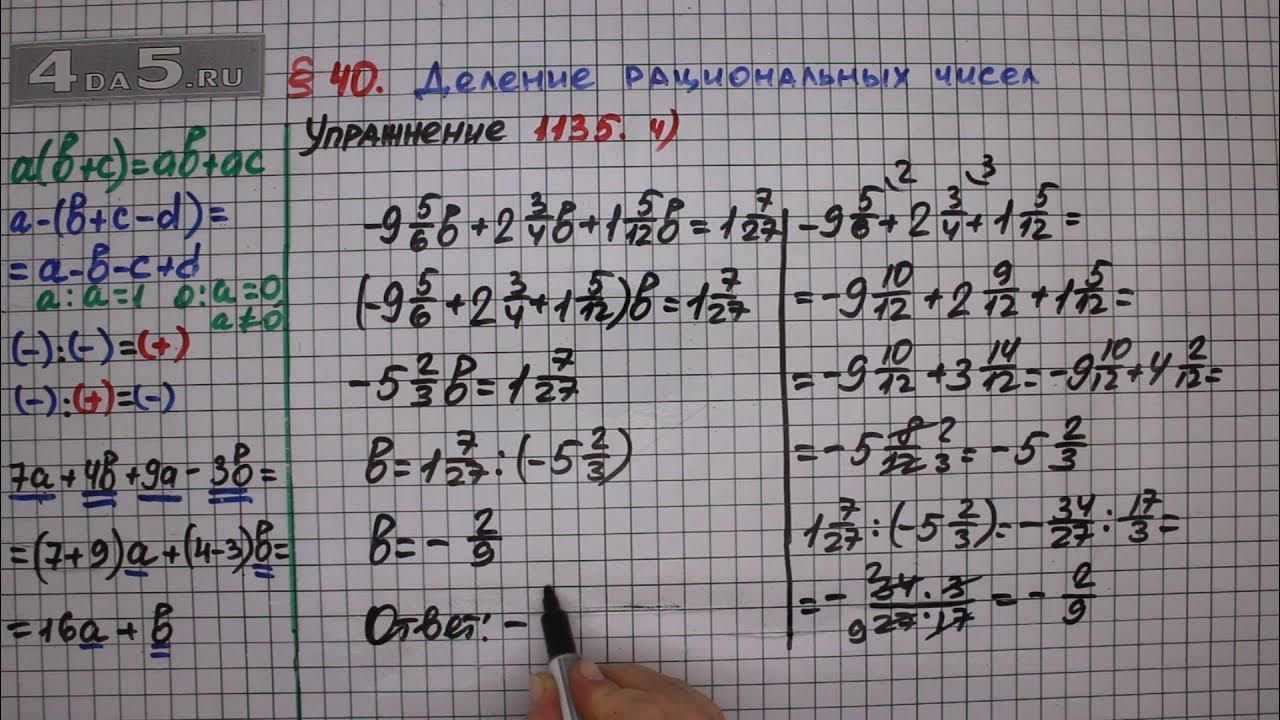 4DA5.RU
§ 40. Деление рациональных чисел
Упражнение 1135. 4)
a(b+c)=ab+ac
a-(b+c-d)=
=a-b-c+d
a:a=1 0:a=0
a≠0
(-):(-)=(+)
(-):(+)=(-)
7a+4b+9a-3b=
=(7+9)a+(4-3)b=
=16a+b
-9 5/6 b+2 3/4 b+1 5/12 b=1 7/27
(-9 5/6+2 3/4+1 5/12)b=1 7/27
-5 2/3 b=1 7/27
b=1 7/27:(-5 2/3)
b=-2/9
Ответ: -
-9 5/6 2 +2 3/4 3 +1 5/12=
=-9 10/12+2 9/12+1 5/12=
=-9 10/12+3 14/12=-9 10/12+4 2/12=
=-5 8/12 2/3=-5 2/3
1 7/27:(-5 2/3)=-34/27:17/3=
=- 2 34·3/9 27·17=-2/9